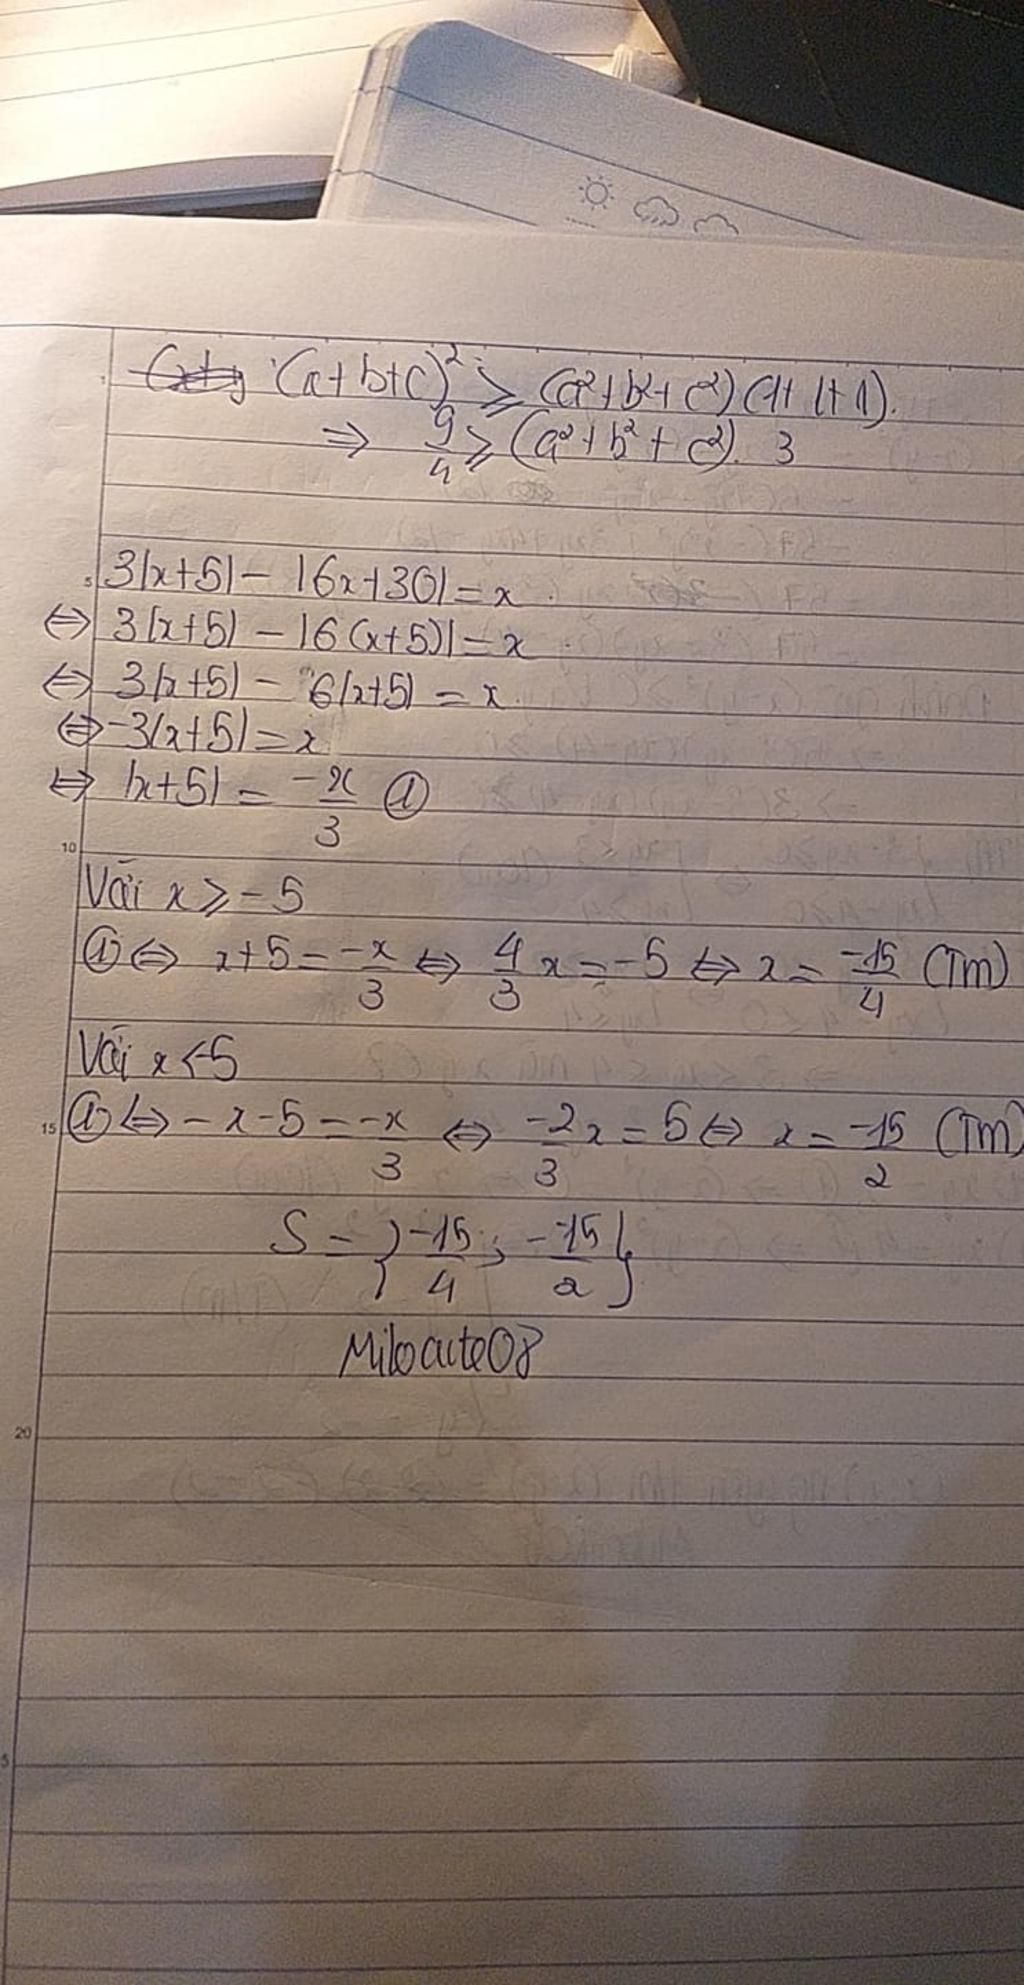 (a+b+c)² ≥ (a²+b²+c²)(1+1+1).
⇒ 9/4 ≥ (a²+b²+c²). 3
5
3|x+5| - |6x+30| = x.
⇔ 3|x+5| - |6(x+5)| = x
⇔ 3|x+5| - 6|x+5| = x.
⇔ -3|x+5| = x
⇔ |x+5| = -x/3 ①
10
Với x ≥ -5
① ⇔ x+5 = -x/3 ⇔ 4/3 x = -5 ⇔ x = -15/4 (Tm)
Với x < -5
15 ① ⇔ -x-5 = -x/3 ⇔ -2/3 x = 5 ⇔ x = -15/2 (Tm)
S = {-15/4; -15/2}
Milocute08
20
5